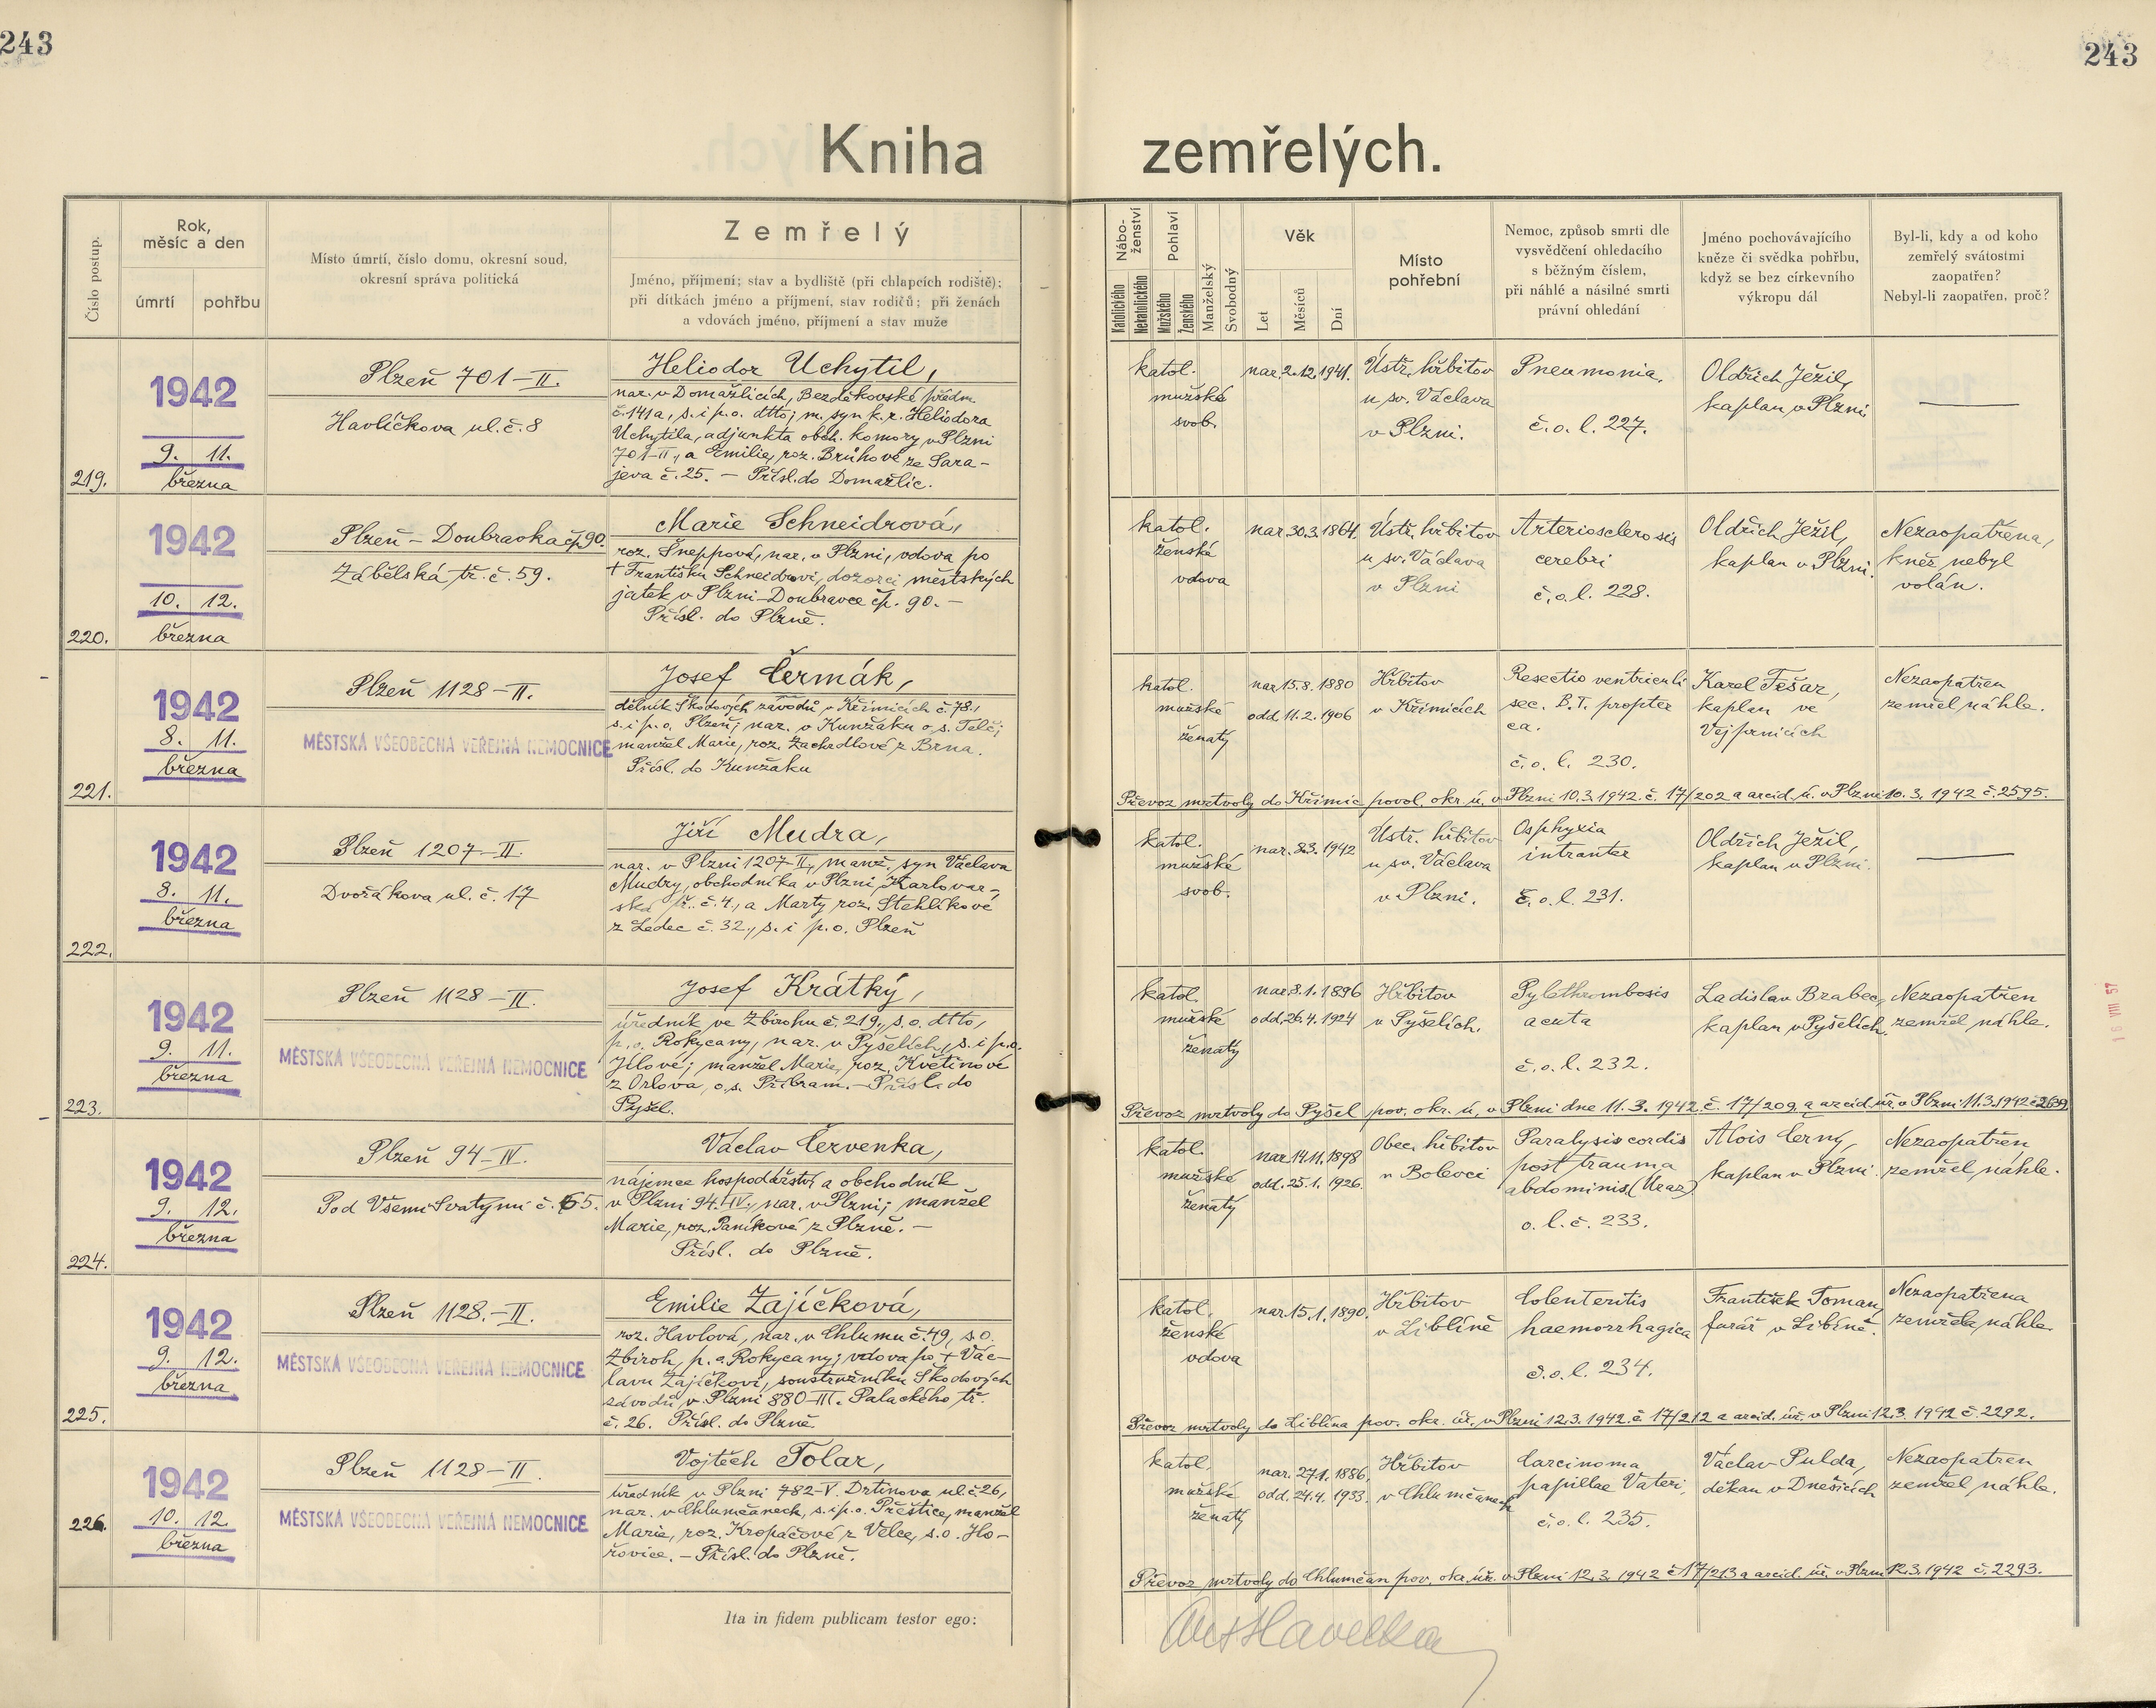 243
243
Kniha zemřelých.
Číslo postup.
Rok, měsíc a den
úmrtí
pohřbu
Místo úmrtí, číslo domu, okresní soud,
okresní správa politická
Zemřelý
Jméno, příjmení; stav a bydliště (při chlapcích rodiště);
při dítkách jméno a příjmení, stav rodičů; při ženách
a vdovách jméno, příjmení a stav muže
Nábo-
ženství
Katolického
Nekatolického
Pohlaví
Mužského
Ženského
Manželský
Svobodný
Věk
Let
Měsíců
Dní
Místo
pohřební
Nemoc, způsob smrti dle
vysvědčení ohledacího
s běžným číslem,
při náhlé a násilné smrti
právní ohledání
Jméno pochovávajícího
kněze či svědka pohřbu,
když se bez církevního
výkropu dál
Byl-li, kdy a od koho
zemřelý svátostmi
zaopatřen?
Nebyl-li zaopatřen, proč?
219.
1942
9. 11.
března
Plzeň 701-II.
Havlíčkova ul. č. 8
Heliodor Uchytil,
nar. v Domažlicích, Bezděkovské předm.
č. 141a, s. i p. o. dtto; m. syn k. r. Heliodora
Uchytila, adjunkta obch. komory v Plzni
701-II., a Emilie, roz. Brůhové ze Sara-
jeva č. 25. - Přísl. do Domažlic.
katol.
mužské
svob.
nar. 2.12.1941.
Ústř. hřbitov
u sv. Václava
v Plzni.
Pneumonia.
č. o. l. 227.
Oldřich Ježil,
kaplan v Plzni.
220.
1942
10. 12.
března
Plzeň - Doubravka čp. 90.
Zábělská tř. č. 59.
Marie Schneidrová,
roz. Šneppová, nar. v Plzni, vdova po
+ Františku Schneidrovi, dozorci městských
jatek v Plzni-Doubravce čp. 90. -
Přísl. do Plzně.
katol.
ženské
vdova
nar. 30.3.1864.
Ústř. hřbitov
u sv. Václava
v Plzni
Arteriosclerosis
cerebri
č. o. l. 228.
Oldřich Ježil,
kaplan v Plzni.
Nezaopatřena,
kněz nebyl
volán.
221.
1942
8. 11.
března
Plzeň 1128-II.
MĚSTSKÁ VŠEOBECNÁ VEŘEJNÁ NEMOCNICE
Josef Čermák,
dělník Škodových závodů v Křimicích č. 78.,
s. i p. o. Plzeň; nar. v Kunžaku o. s. Telč;
manžel Marie, roz. Zachrdlové z Brna.
Přísl. do Kunžaku
katol.
mužské
ženatý
nar. 15.8.1880
odd. 11.2.1906
Hřbitov
v Křimicích
Resectio ventriculi
sec. B.T. propter
ca.
č. o. l. 230.
Karel Tešar,
kaplan ve
Vejprnicích
Nezaopatřen
zemřel náhle.
Převoz mrtvoly do Křimic povol. okr. ú. v Plzni 10.3.1942. č. 17/202 a arcid. ú. v Plzni 10.3.1942 č. 2595.
222.
1942
8. 11.
března
Plzeň 1207-II.
Dvořákova ul. č. 17
Jiří Mudra,
nar. v Plzni 1207-II., manž. syn Václava
Mudry, obchodníka v Plzni, Karlovar-
ská tř. č. 4., a Marty roz. Stehlíkové
z Ledec č. 32., s. i p. o. Plzeň
katol.
mužské
svob.
nar. 8.3.1942
Ústř. hřbitov
u sv. Václava
v Plzni.
Osphyxia
intranter
č. o. l. 231.
Oldřich Ježil,
kaplan v Plzni.
223.
1942
9. 11.
března
Plzeň 1128-II.
MĚSTSKÁ VŠEOBECNÁ VEŘEJNÁ NEMOCNICE
Josef Krátký,
úředník ve Zbirohu č. 219., s. o. dtto,
p. o. Rokycany, nar. v Pyšelích, s. i p. o.
Jílové; manžel Marie, roz. Květinové
z Orlova, o. s. Příbram. - Přísl. do
Pyšel.
katol.
mužské
ženatý
nar. 8.1.1896
odd. 26.4.1924
Hřbitov
v Pyšelích.
Pylethrombosis
acuta
č. o. l. 232.
Ladislav Brabec,
kaplan v Pyšelích.
Nezaopatřen
zemřel náhle.
Převoz mrtvoly do Pyšel pov. okr. ú. v Plzni dne 11.3.1942. č. 17/209. a arcid. úř. v Plzni 11.3.1942 č. 2639
224.
1942
9. 12.
března
Plzeň 94-IV.
Pod Všemi Svatými č. 65.
Václav Červenka,
nájemce hospodářství a obchodník
v Plzni 94-IV., nar. v Plzni; manžel
Marie, roz. Paníkové z Plzně. -
Přísl. do Plzně.
katol.
mužské
ženatý
nar. 14.11.1898
odd. 25.1.1926.
Obec. hřbitov
v Bolevci
Paralysis cordis
post trauma
abdominis (Úraz)
o. l. č. 233.
Alois Černý,
kaplan v Plzni
Nezaopatřen
zemřel náhle.
225.
1942
9. 12.
března
Plzeň 1128.-II.
MĚSTSKÁ VŠEOBECNÁ VEŘEJNÁ NEMOCNICE
Emilie Zajíčková,
roz. Havlová, nar. v Chlumu č. 49, s. o.
Zbiroh, p. o. Rokycany; vdova po + Vác-
lavu Zajíčkovi, soustružníku Škodových
závodů v Plzni 880-III. Palackého tř.
č. 26. Přísl. do Plzně
katol.
ženské
vdova
nar. 15.1.1890.
Hřbitov
v Liblíně
Colenteritis
haemorrhagica
č. o. l. 234.
František Toman,
farář v Liblíně.
Nezaopatřena
zemřela náhle.
Převoz mrtvoly do Liblína pov. okr. úř. v Plzni 12.3.1942. č. 17/212 a arcid. úř. v Plzni 12.3.1942 č. 2292.
226.
1942
10. 12.
března
Plzeň 1128-II.
MĚSTSKÁ VŠEOBECNÁ VEŘEJNÁ NEMOCNICE
Vojtěch Tolar,
úředník v Plzni 782-V. Drtinova ul. č. 26,
nar. v Chlumčanech, s. i p. o. Přeštice, manžel
Marie, roz. Kropáčové z Velce, s. o. Ho-
řovice. - Přísl. do Plzně.
katol.
mužské
ženatý
nar. 27.1.1886.
odd. 24.4.1933.
Hřbitov
v Chlumčanech
Carcinoma
papillae Vateri,
č. o. l. 235.
Václav Pulda,
děkan v Dnešicích
Nezaopatřen
zemřel náhle.
Převoz mrtvoly do Chlumčan pov. okr. úř. v Plzni 12.3.1942 č 17/213 a arcid. úř. v Plzni 12.3.1942 č. 2293.
Ita in fidem publicam testor ego:
Ant Havelka
18 VIII 57